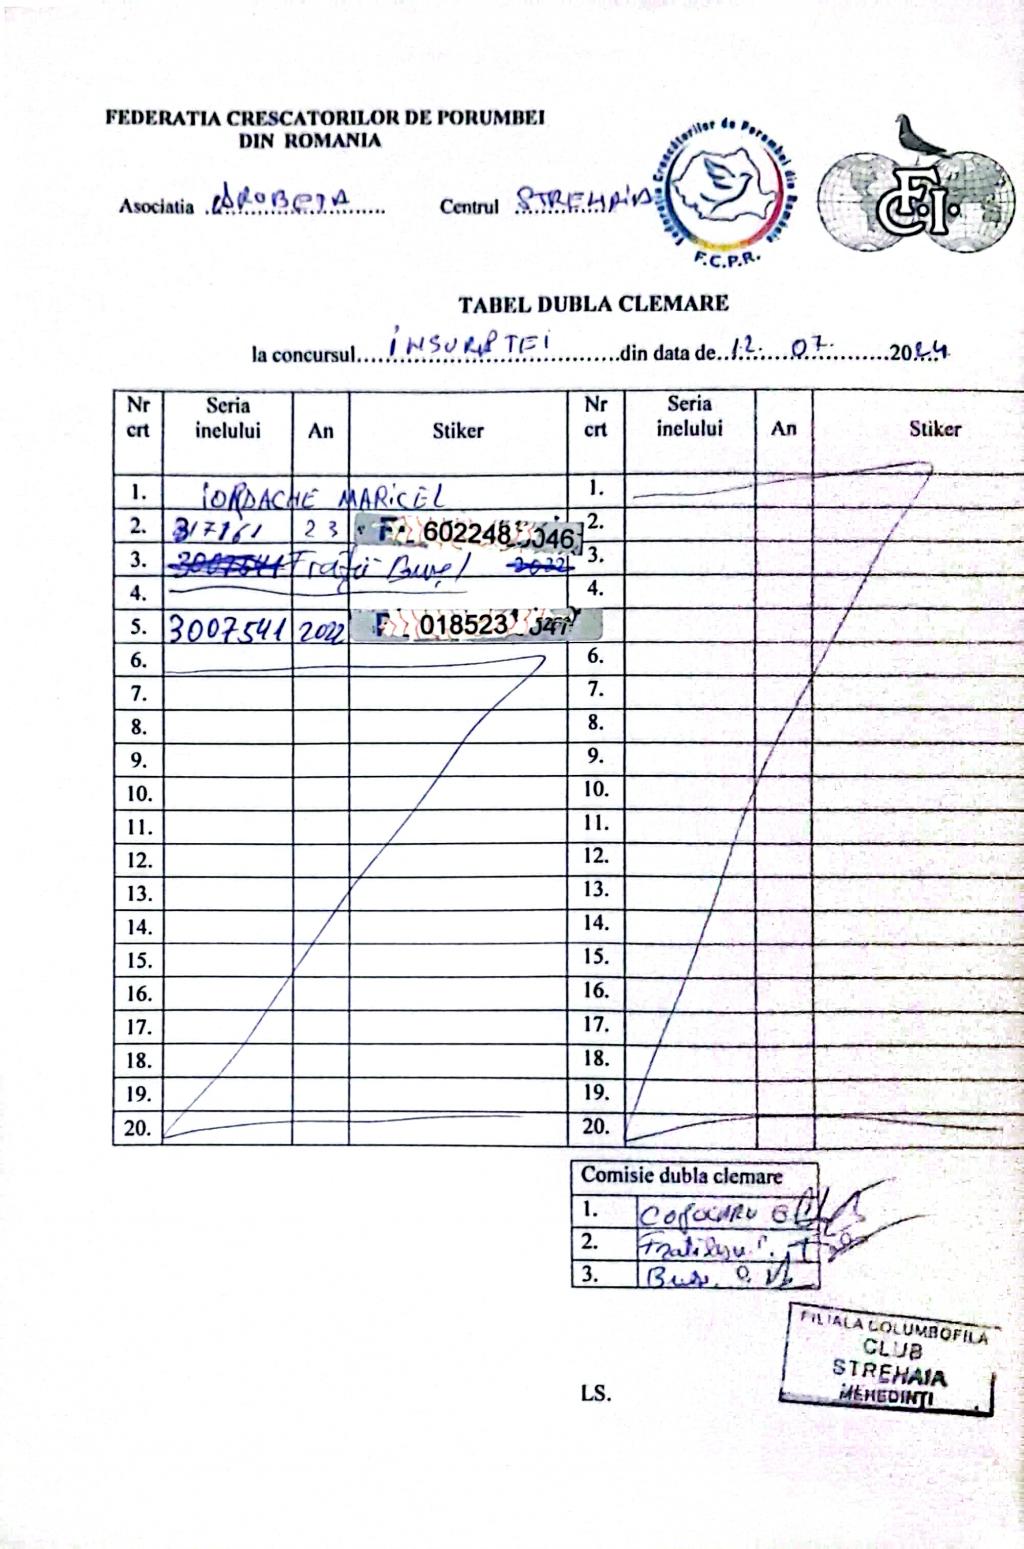 FEDERATIA CRESCATORILOR DE PORUMBEI
DIN ROMANIA
Federatia Crescătorilor de Porumbei din România
F.C.P.R.
F.C.I.
Asociatia DROBETA Centrul STREHAIA
TABEL DUBLA CLEMARE
la concursul INSURATEI din data de 12. 07. 2024
Nr crt Seria inelului An Stiker Nr crt Seria inelului An Stiker
1. IORDACHE MARICEL 1.
2. 317161 23 602248 046 2.
3. 3007541 Frații Bușel 2022 3.
4. 4.
5. 3007541 2022 018523
6. 6.
7. 7.
8. 8.
9. 9.
10. 10.
11. 11.
12. 12.
13. 13.
14. 14.
15. 15.
16. 16.
17. 17.
18. 18.
19. 19.
20. 20.
Comisie dubla clemare
1. COJOCARU
2.
3.
FILIALA COLUMBOFILA
CLUB
STREHAIA
MEHEDINTI
LS.